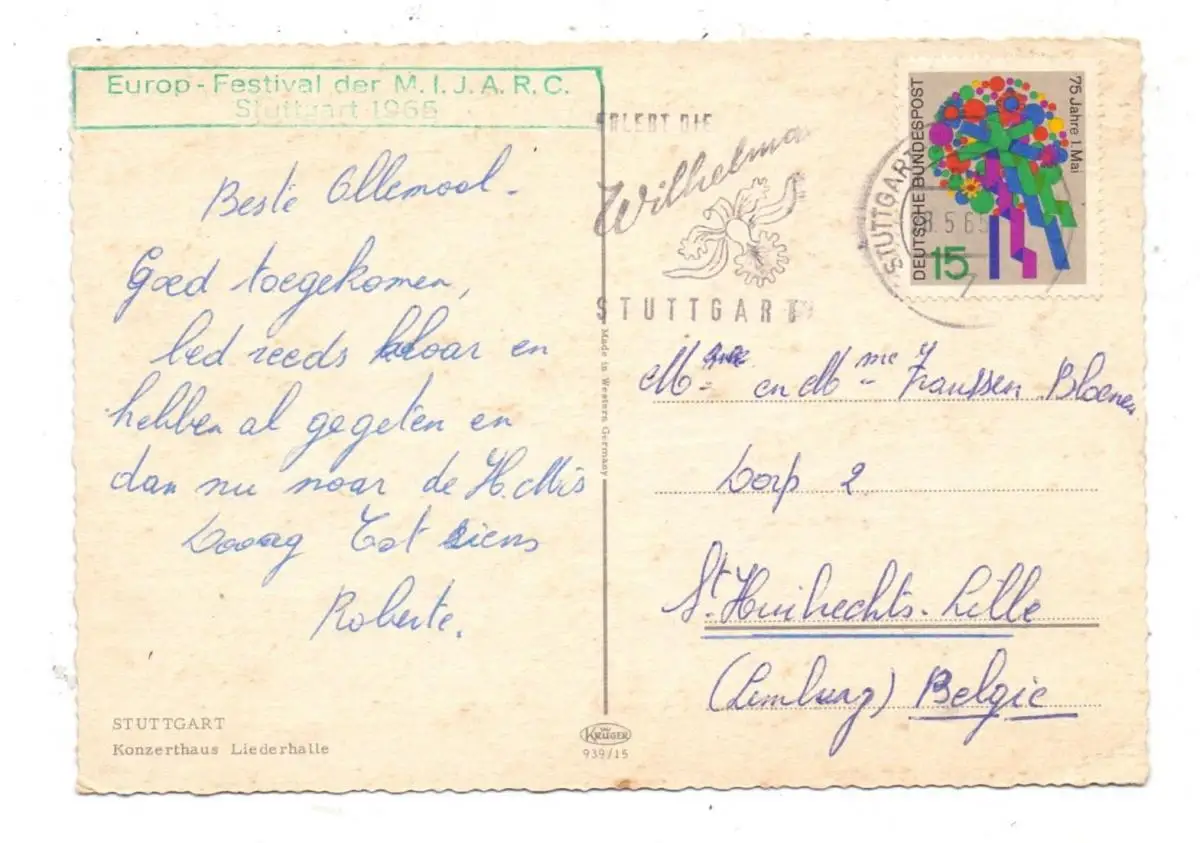 Europ-Festival der M.I.J.A.R.C.
Stuttgart 1965
Beste Allemaal.
Goed toegekomen,
bed reeds klaar en
hebben al gegeten en
dan nu naar de H. Mis
Daaag Tot ziens
Roberte.
STUTTGART
Konzerthaus Liederhalle
Made in Western Germany
KRÜGER
939/15
ERLEBT DIE
Wilhelma
STUTTGART
STUTTGART
5 65
7
DEUTSCHE BUNDESPOST
75 Jahre 1. Mai
15
en Mme
Dorp 2
St. Huibrechts-Lille
(Limburg) Belgie